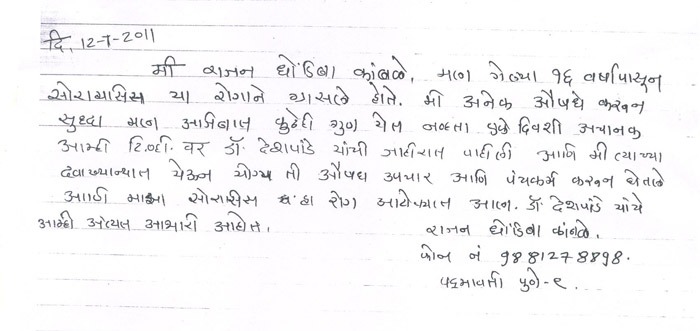 दि. 12-7-2011
मी राजन धोंडिबा कांबळे, मला गेल्या १६ वर्षापासून
सोरायसिस या रोगाने ग्रासले होते. मी अनेक औषधे करून
सुध्दा मला आजिबात कुठेही गुण येत नव्हता एके दिवशी अचानक
आम्ही टि.व्ही. वर डॉ. देशपांडे यांची जाहीरात पाहीली आणि मी त्याच्या
दवाखान्यात येऊन योग्य ती औषध उपचार आणि पंचकर्म करून घेतले
आणि माझा सोरासीस हा रोग आटोक्यात आला. डॉ. देशपांडे यांचे
आम्ही अत्यंत आभारी आहोत.
राजन धोंडिबा कांबळे.
फोन नं 9881278898.
पद्मावती पुणे-९.